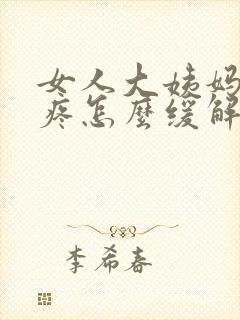 女人大姨妈
疼怎麽缓解
李希春